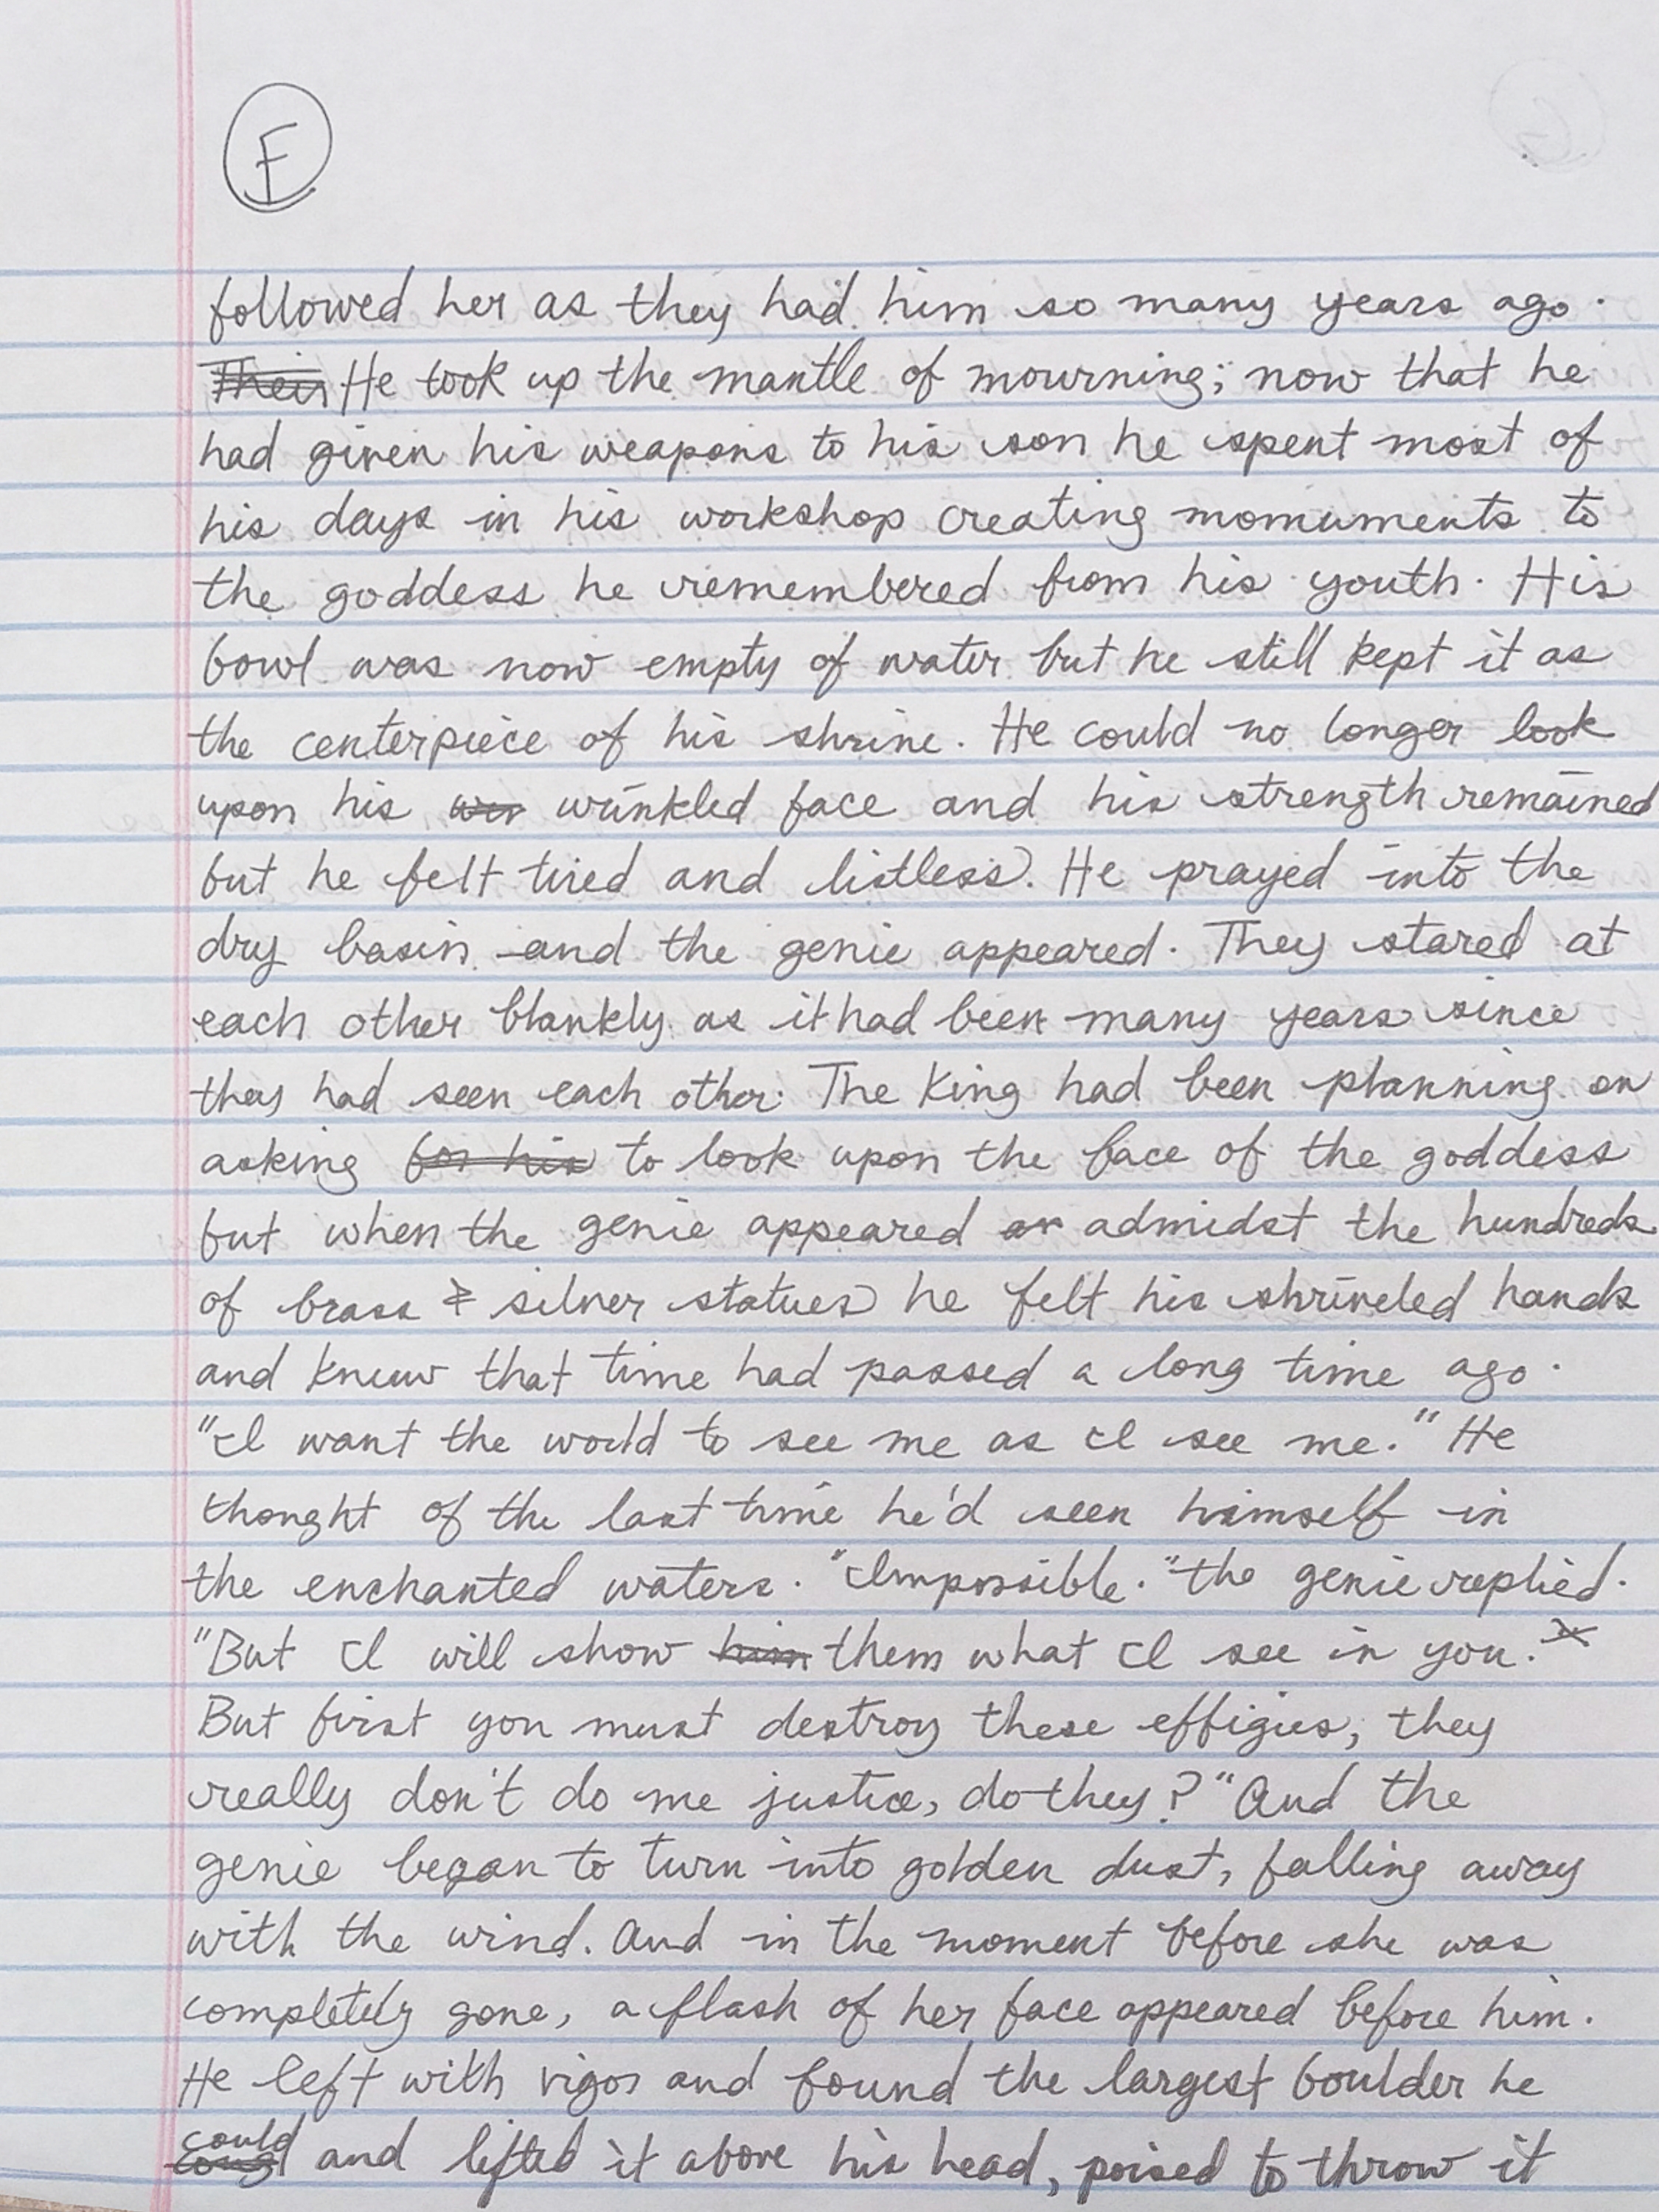 F
followed her as they had him so many years ago.
Their He took up the mantle of mourning; now that he
had given his weapons to his son he spent most of
his days in his workshop creating momuments to
the goddess he remembered from his youth. His
bowl was now empty of water but he still kept it as
the centerpiece of his shrine. He could no longer look
upon his wr wrinkled face and his strength remained
but he felt tired and listless. He prayed into the
dry basin and the genie appeared. They stared at
each other blankly as it had been many years since
they had seen each other. The King had been planning on
asking for his to look upon the face of the goddess
but when the genie appeared admidst the hundreds
of brass & silver statues he felt his shriveled hands
and knew that time had passed a long time ago.
"I want the world to see me as I see me." He
thought of the last time he'd seen himself in
the enchanted waters. "Impossible." the genie replied.
"But I will show him them what I see in you.
But first you must destroy these effigies, they
really don't do me justice, do they?" And the
genie began to turn into golden dust, falling away
with the wind. And in the moment before she was
completely gone, a flash of her face appeared before him.
He left with vigor and found the largest boulder he
could and lifted it above his head, poised to throw it